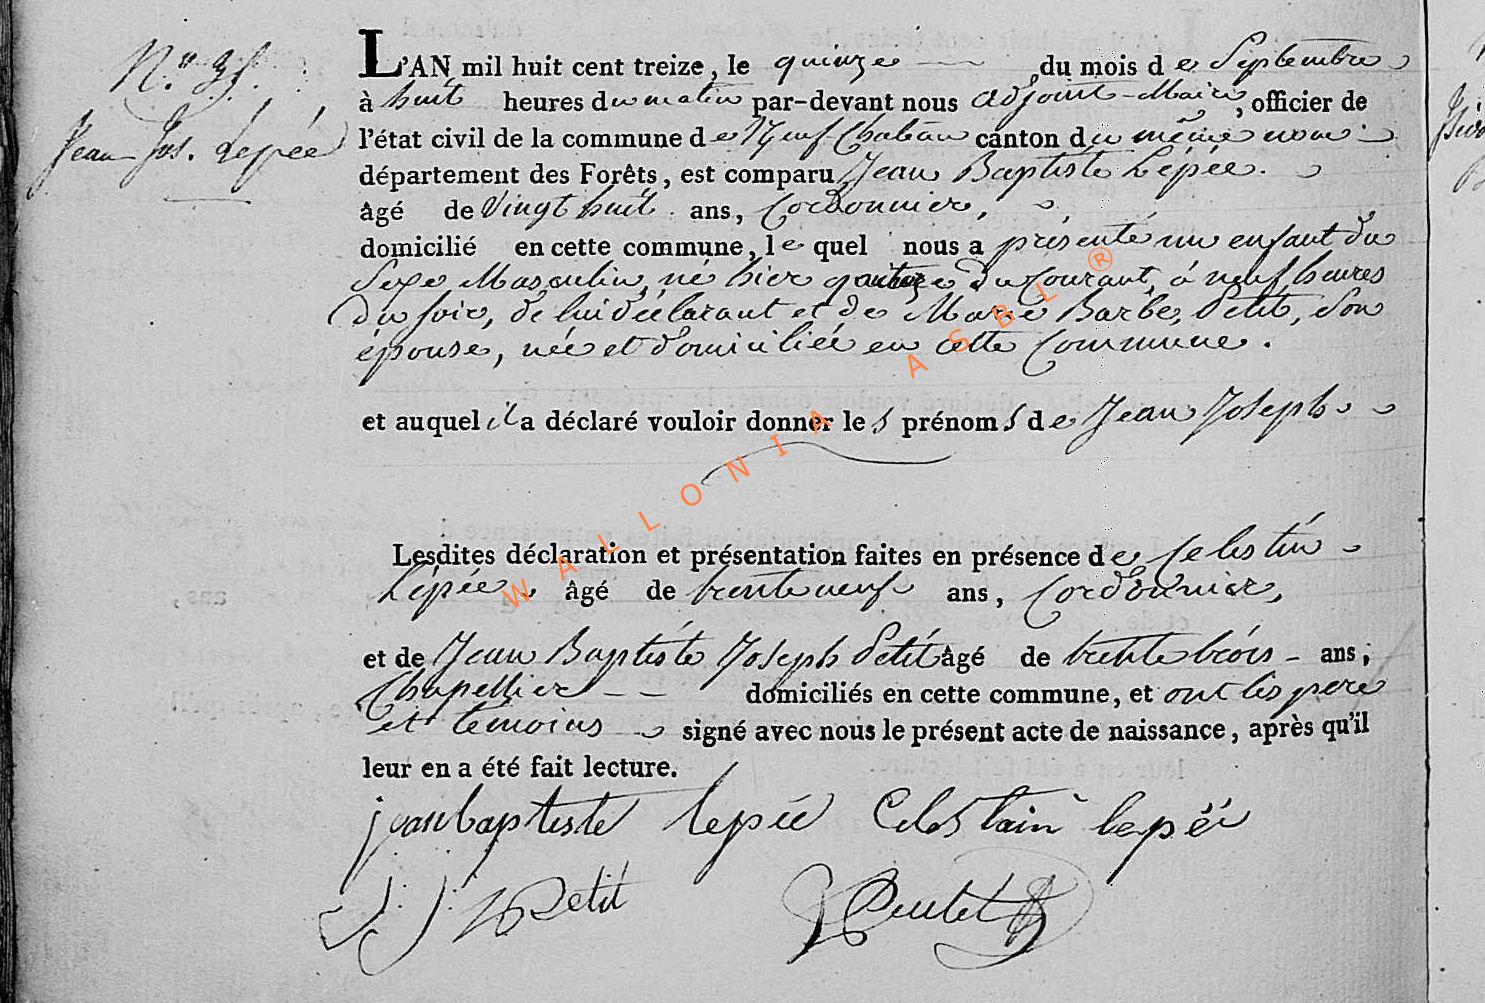 N.º 35.
Jean Jos. Lepée
L'AN mil huit cent treize, le quinze du mois de Septembre
à huit heures du matin par-devant nous adjoint-Maire, officier de
l'état civil de la commune de Neufchateau canton du même nom
département des Forêts, est comparu Jean Baptiste Lépée.
âgé de Vingt huit ans, Cordonnier,
domicilié en cette commune, lequel nous a présenté un enfant du
Sexe Masculin, né hier quatorze du Courant, à neuf heures
Du soir, de lui déclarant et de Marie Barbe Petit, Son
épouse, née et domiciliée en cette Commune.
et auquel il a déclaré vouloir donner les prénoms de Jean Joseph
Lesdites déclaration et présentation faites en présence de Celestin
Lépée âgé de trente neuf ans, Cordonnier,
et de Jean Baptiste Joseph Petit âgé de trente trois ans,
Chapellier domiciliés en cette commune, et ont les pere
et témoins signé avec nous le présent acte de naissance, après qu'il
leur en a été fait lecture.
jean baptiste lepée Celestain lepée
J J Petit
WALLONIA ASBL ®